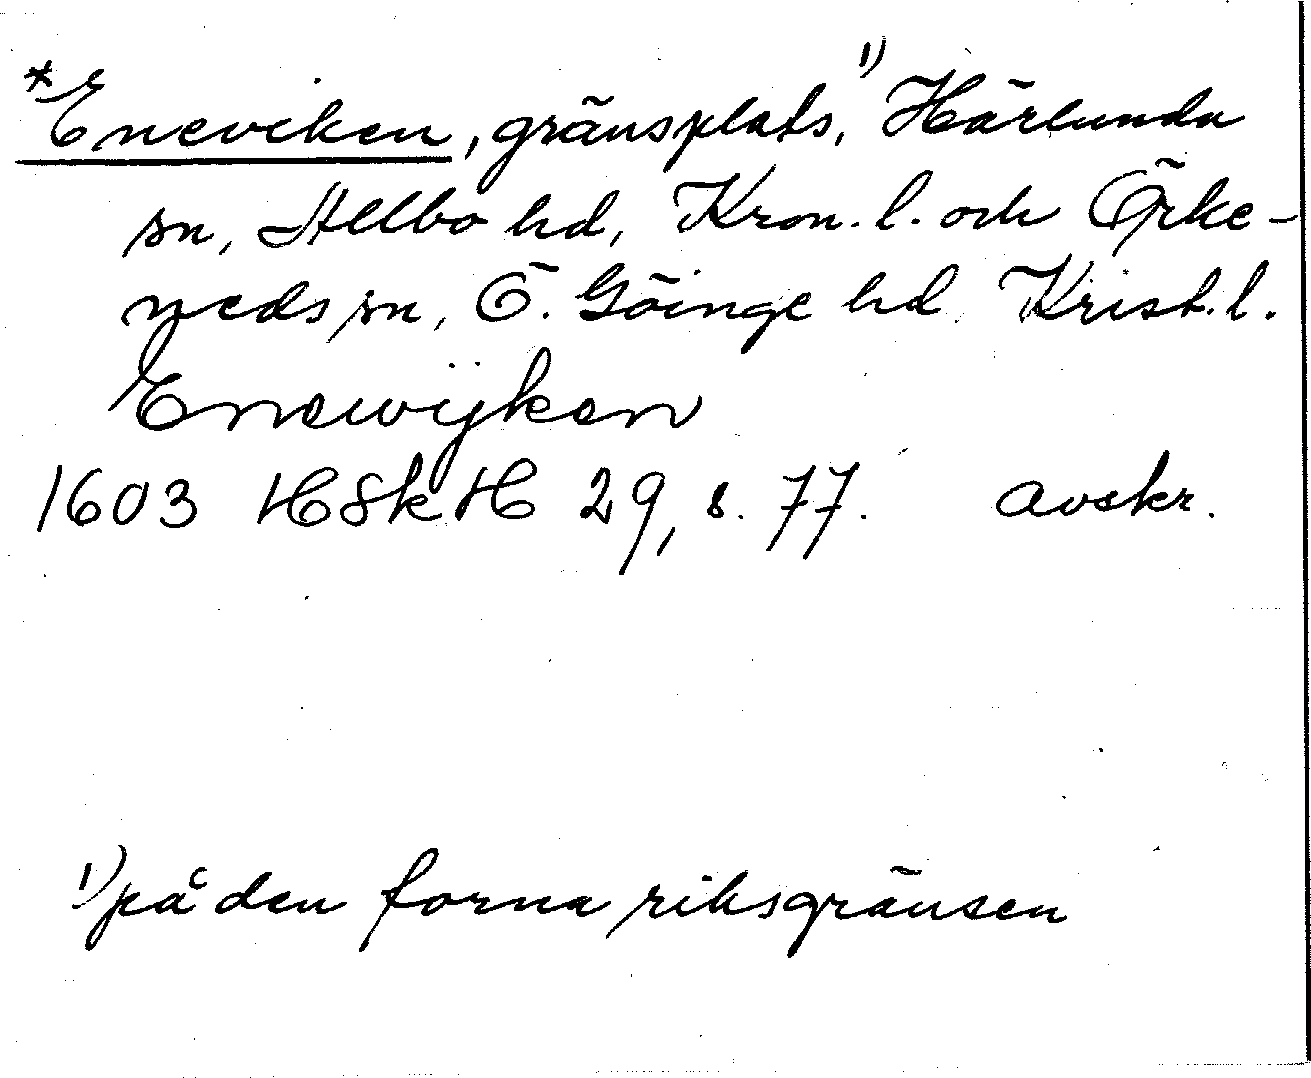 *Eneviken, gränsplats,¹⁾ Härlunda
sn, Allbo hd, Kron. l. och Örke-
neds sn, Ö. Göinge hd. Krist. l.
Enewijken
1603 HSkH 29, s. 77. avskr.
¹⁾ på den forna riksgränsen